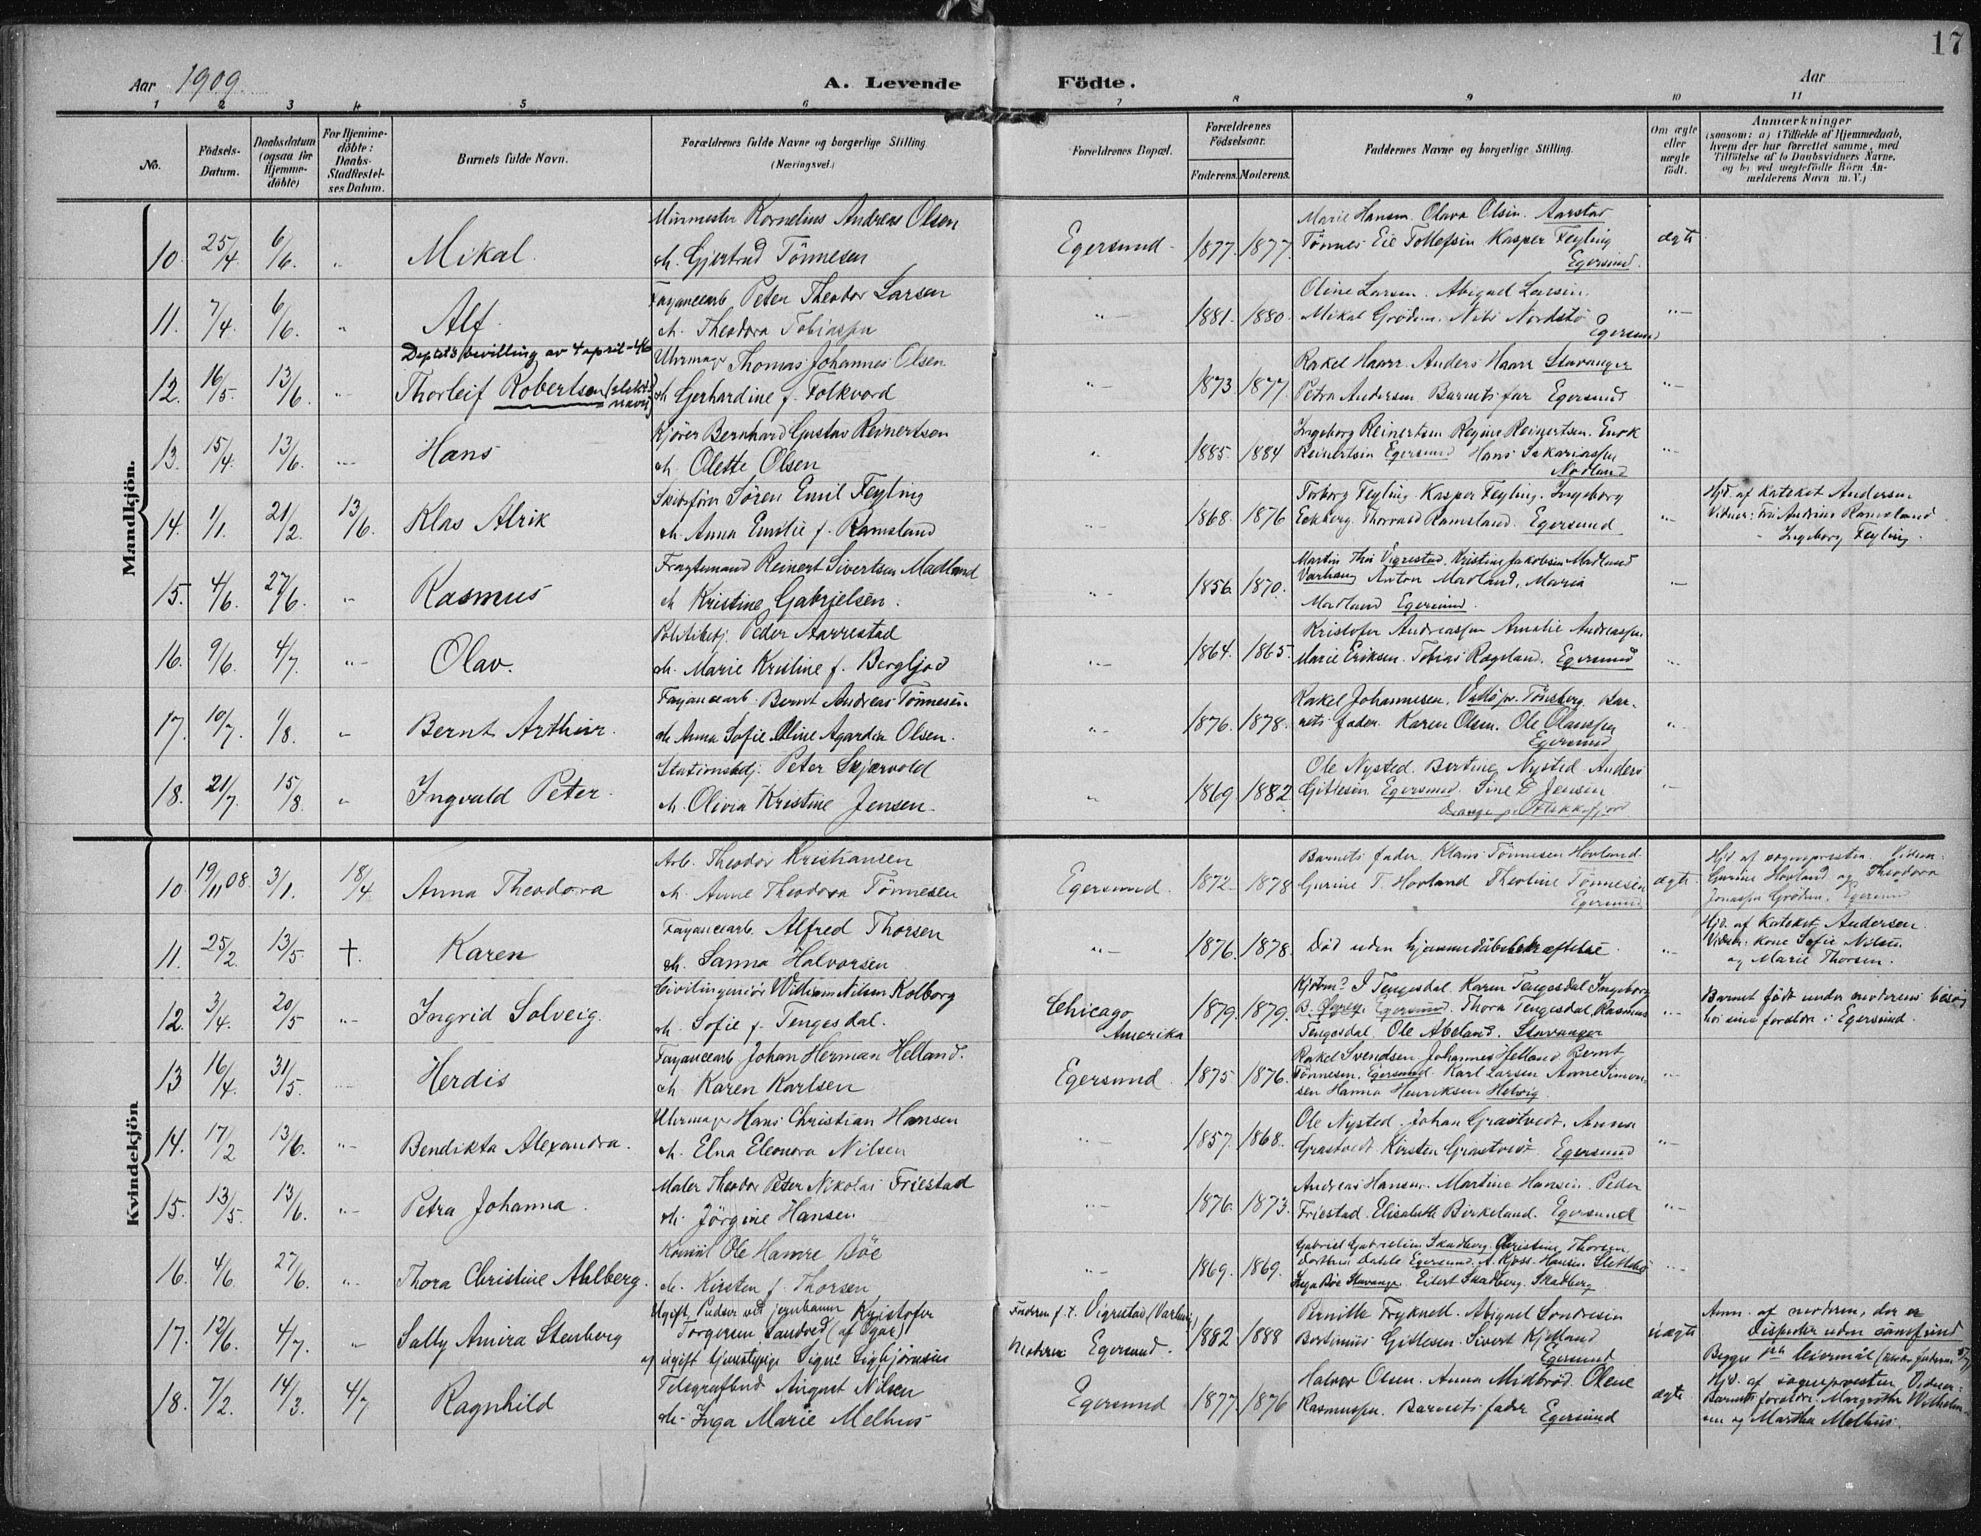 17
Aar 1909. A. Levende Födte. Aar
1 2 3 4 5 6 7 8 9 10 11
No. Födsels-Datum. Daabsdatum (ogsaa for Hjemme-döbte) For Hjemme-döbte: Daabs-Stadfæstel-ses Datum. Barnets fulde Navn. Forældrenes fulde Navne og borgerlige Stilling (Næringsvei.) Forældrenes Bopæl. Forældrenes Födselsaar. Faderens. Moderens. Faddernes Navne og borgerlige Stilling. Om ægte eller uægte födt. Anmærkninger
(saasom: a) i Tilfælde af Hjemmedaab,
hvem der har forrettet samme, med
Tilföielse af to Daabsvidners Navne.
og b) ved uægtefödte Börn An-
melderens Navn m. V.)
Mandkjön.
Murmester Kornelius Andreas Olsen Marie Hansen. Olava Olsen. Aarstad
10. 25/4 6/6. " Mikal. M. Gjertrud Tönnesen Egersund. 1877. 1877. Tönnes Eie Tollefsen Kasper Feyling ægte
Egersund.
Fayancearb. Peter Theodor Larsen Oline Larsen. Abigael Larsen.
11. 7/4. 6/6. " Alf. M. Theodora Tobiassen "- 1881. 1880. Mikal Gröden. Nordstö "-
Egersund
Deptets bevilling av 4 april-46
Uhrmager Thomas Johannes Olsen Rakel Haarr. Anders Haarr Stavanger
12. 16/5. 13/6. "- Thorleif Robertson (slekts navn) M. Gerhardine f. Folkvord "- 1873 1877. Petra Andersen Barnets far Egersund "-
Kjörer Bernhard Gustav Reinertsen Ingeborg Reinertsen Regine Reinertsen. Enok
13. 15/4. 13/6. Hans M. Olette Olsen " 1885. 1884 Reinertsen Egersund Hans Sakariassen "-
Nodland
Skibsförer Sören Emil Feyling Torborg Feyling. Kasper Feyling. Ingeborg Hjd. af kateket Andersen
14. 1/1. 21/2. 13/6. Klas Alrik M. Anna Emilie f. Ramsland "- 1868. 1876 Eckberg. Thorvald Ramsland. Egersund "- Vidner: Andrine Ramsland
- Ingeborg Feyling.
Fragtemand Reinert Sivertsen Madland Martin Vigrestad. Kristine Jakobsen Madland
15. 4/6. 27/6. " Rasmus M. Kristine Gabrielsen. "- 1856. 1870. Varhaug Anton Madland, Maria "-
Madland Egersund.
Politibetj. Peder Aarrestad Kristofer Andreassen Amalie Andreassen
16. 9/6. 4/7. "- Olav. M. Marie Kristine f. Bergljod "- 1864. 1865. Marie Eriksen. Tobias Rægeland. Egersund "-
Fayancearb. Bernt Andreas Tönnesen Rakel Johannesen. Tönsberg. Bar-
17. 10/7. 1/8. " Bernt Arthur. M. Anna Sofie Oline Agardia Olsen. "- 1876. 1878. nets fader. Karen Olsen. Ole Olaussen "
Egersund
Stationsbetj. Peter Skjærvold Ole Nysted. Bertine Nysted. Anders
18. 21/7. 15/8. " Ingvald Peter. M. Olivia Kristine Jensen. " 1869 1882 Gitlesen Egersund. Sine E Jensen "-
Drange pr Flekkefjord
Kvindekjön
Arb. Theodor Kristiansen Barnets fader Klaus Tönnesen Hovland. Hjd. af sognepresten Vidner:
10. 19/11 08. 3/1. 18/4 Anna Theodora M. Anne Theodora Tönnesen Egersund. 1872 1878 Gurine T. Hovland Theoline Tönnesen ægte. Gurine Hovland og Theodora
Egersund Jonassen Gröden. Egersund
Fayancearb. Alfred Thorsen Hjd. af Kateket Andersen.
11. 25/2. 13/5 +. Karen M. Sanna Halvorsen "- 1876. 1878. Död uden hjemmedaabsbekræftelse "- Vidner: kone Sofie Nilsen
og Marie Thorsen.
Civilingeniör William Nilsen Kolborg Chicago Kjöbm. J. Tengesdal Karen Tengesdal Ingeborg Barnet födt under moderens besög
12. 3/4. 20/5 "- Ingrid Solveig. M. Sofie f. Tengesdal. Amerika 1879. 1879. B. Egersund. Thora Tengesdal Rasmus "- hos sine forældre i Egersund.
Tengesdal. Ole Abeland. Stavanger
Fayancearb. Johan Herman Helland. Rakel Svendsen Johannes Helland Bernt
13 16/4. 31/5. Herdis M. Karen Karlsen Egersund. 1875 1876. Tönnesen. Egersund. Karl Larsen Anne Simon- "-
sen Hanna Henriksen Helvig.
Uhrmager Hans Christian Hansen Ole Nysted. Johan Grastvedt. Anna
14. 17/2 13/6. "- Bendikta Alexandra. M. Elna Eleonora Nilsen "- 1857. 1868. Grastvedt Kirsten Grastvedt Egersund "-
Maler Theodor Peter Nikolai Friestad Andreas Hansen. Martine Hansen. Peder
15. 13/5. 13/6. "- Petra Johanna. M. Jörgine Hansen "- 1876. 1873. Friestad. Elisabeth Birkeland. Egersund "-
Ole Hamre Böe Gabriel Gabrielsen Skadberg. Christine Thorsen
16. 4/6. 27/6. "- Thora Christine Ahlberg. M. Kirsten f. Thorsen "- 1869. 1869. Egersund. Hansen Slettebö "-
Inga Böe Stavanger Eilert Skadberg. Skadberg
Ugift Pudser ved jernbanen Kristofer Faderen f. t. Vigrestad (Varhaug) Pernille Tryknell. Abigael Sondresen Anm. af moderen, der er
17. 12/6. 4/7. " Sally Amira Stenberg Torgersen Sandved (af Ogne) 1882 1888 Bertinius Gitlesen. Sivert Kjelland uægte Dissenter uden samfund
og ugift tjenestepige Signe Sigbjörnsen Moderen Egersund. Egersund Begges leiermål
Telegrafbud August Nilsen Halvor Olsen. Anna Midbröd. Olene Hjd. af sognepresten Vidner:
18. 7/2. 14/3. 4/7 Ragnhild M. Inga Marie Melhus Egersund 1877. 1876 Rasmussen. Barnets fader Egersund ægte Barnets forældre. Margrethe Wilhelm-
sen og Martha Melhus.